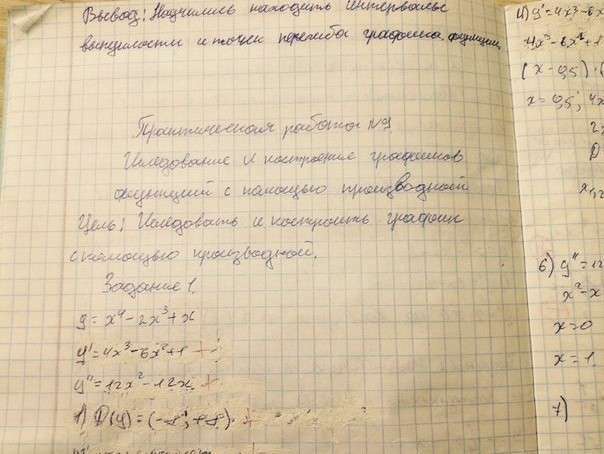 Вывод: Научились находить интервалы
выпуклости и точки перегиба графика функции.
Практическая работа №9
Иследование и построение графиков
функций с помощью производной
Цель: Иследовать и построить график
с помощью производной.
Задание 1.
y = x⁴ - 2x³ + x
y' = 4x³ - 6x² + 1
y'' = 12x² - 12x
1) D(y) = (-∞; +∞)
4) y' = 4x³ - 6x
4x³ - 6x² + 1
(x - 0,5)
x = 0,5; 4x
6) y'' = 12
x² - x
x = 0
x = 1
7)